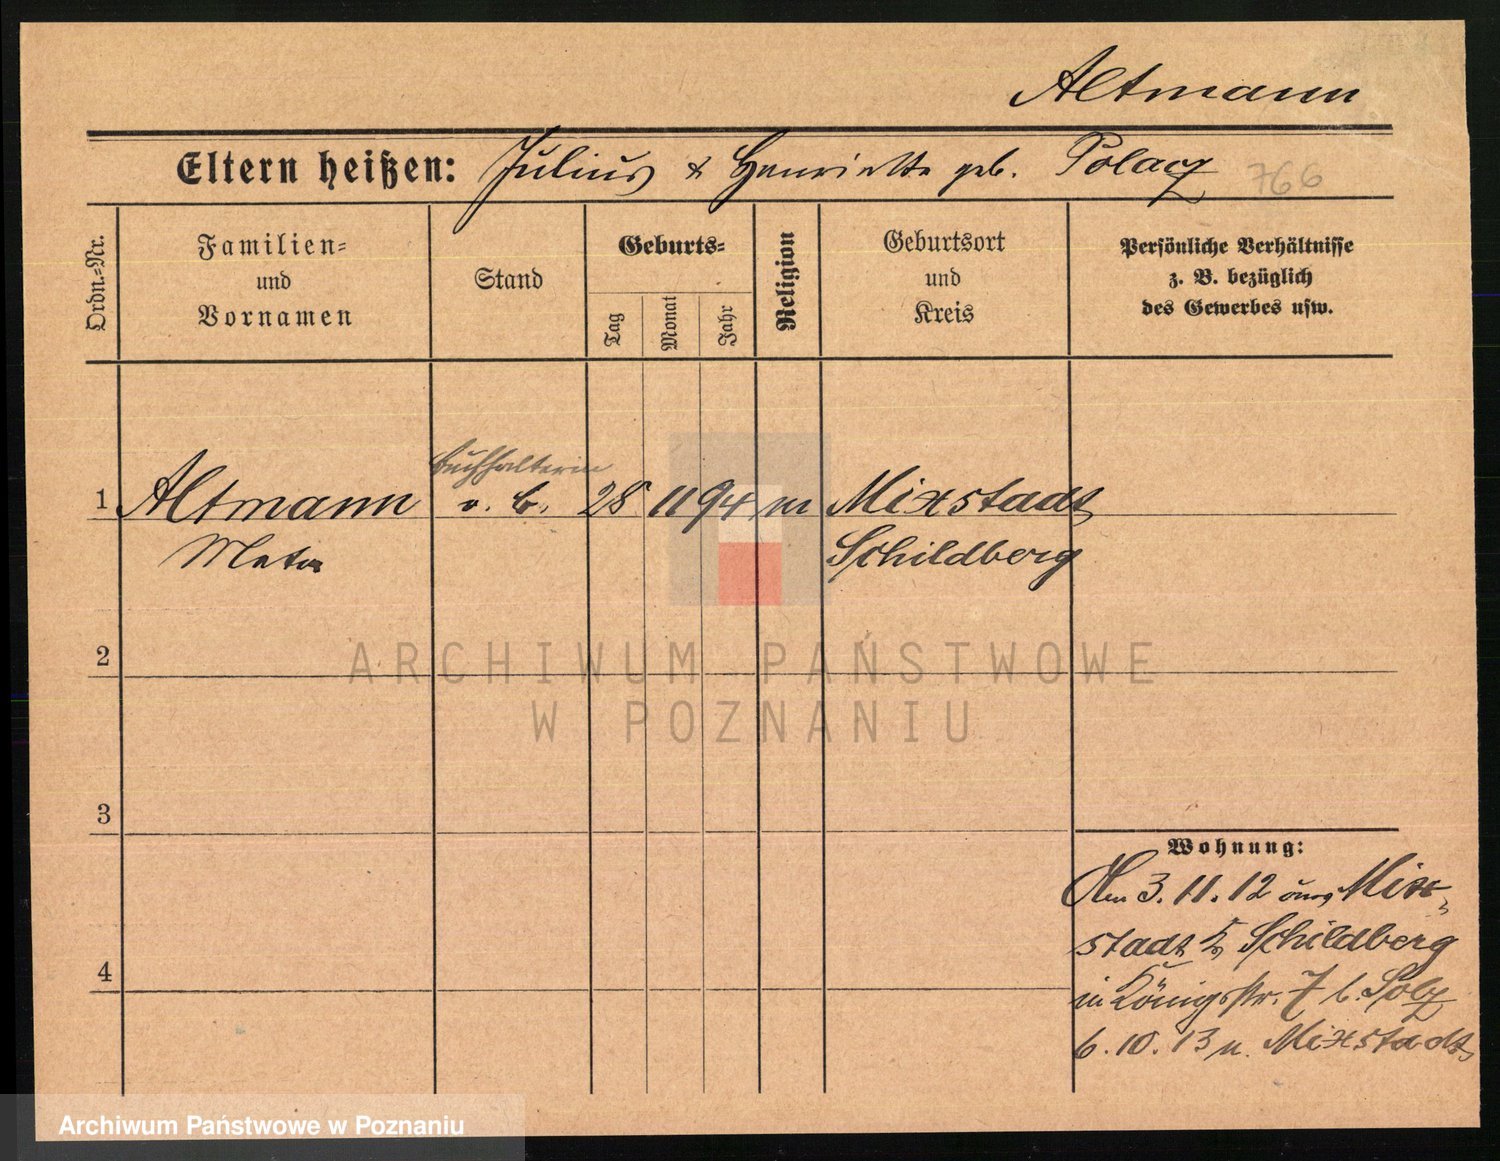 Altmann
Eltern heißen: Julius & Henriette geb. Polacz 766
Ordn.=Nr.
Familien=
und
Vornamen
Stand
Geburts=
Tag
Monat
Jahr
Religion
Geburtsort
und
Kreis
Persönliche Verhältnisse
z. B. bezüglich
des Gewerbes usw.
Buchhalterin
1 Altmann o. B. 28 11 94 m Mixstadt
Meta Schildberg
2
ARCHIWUM PAŃSTWOWE
W POZNANIU
3
Wohnung:
Am 3.11.12 aus Mix=
stadt K. Schildberg
in Königstr. 7 b.
6.10.13 n. Mixstadt
4
Archiwum Państwowe w Poznaniu